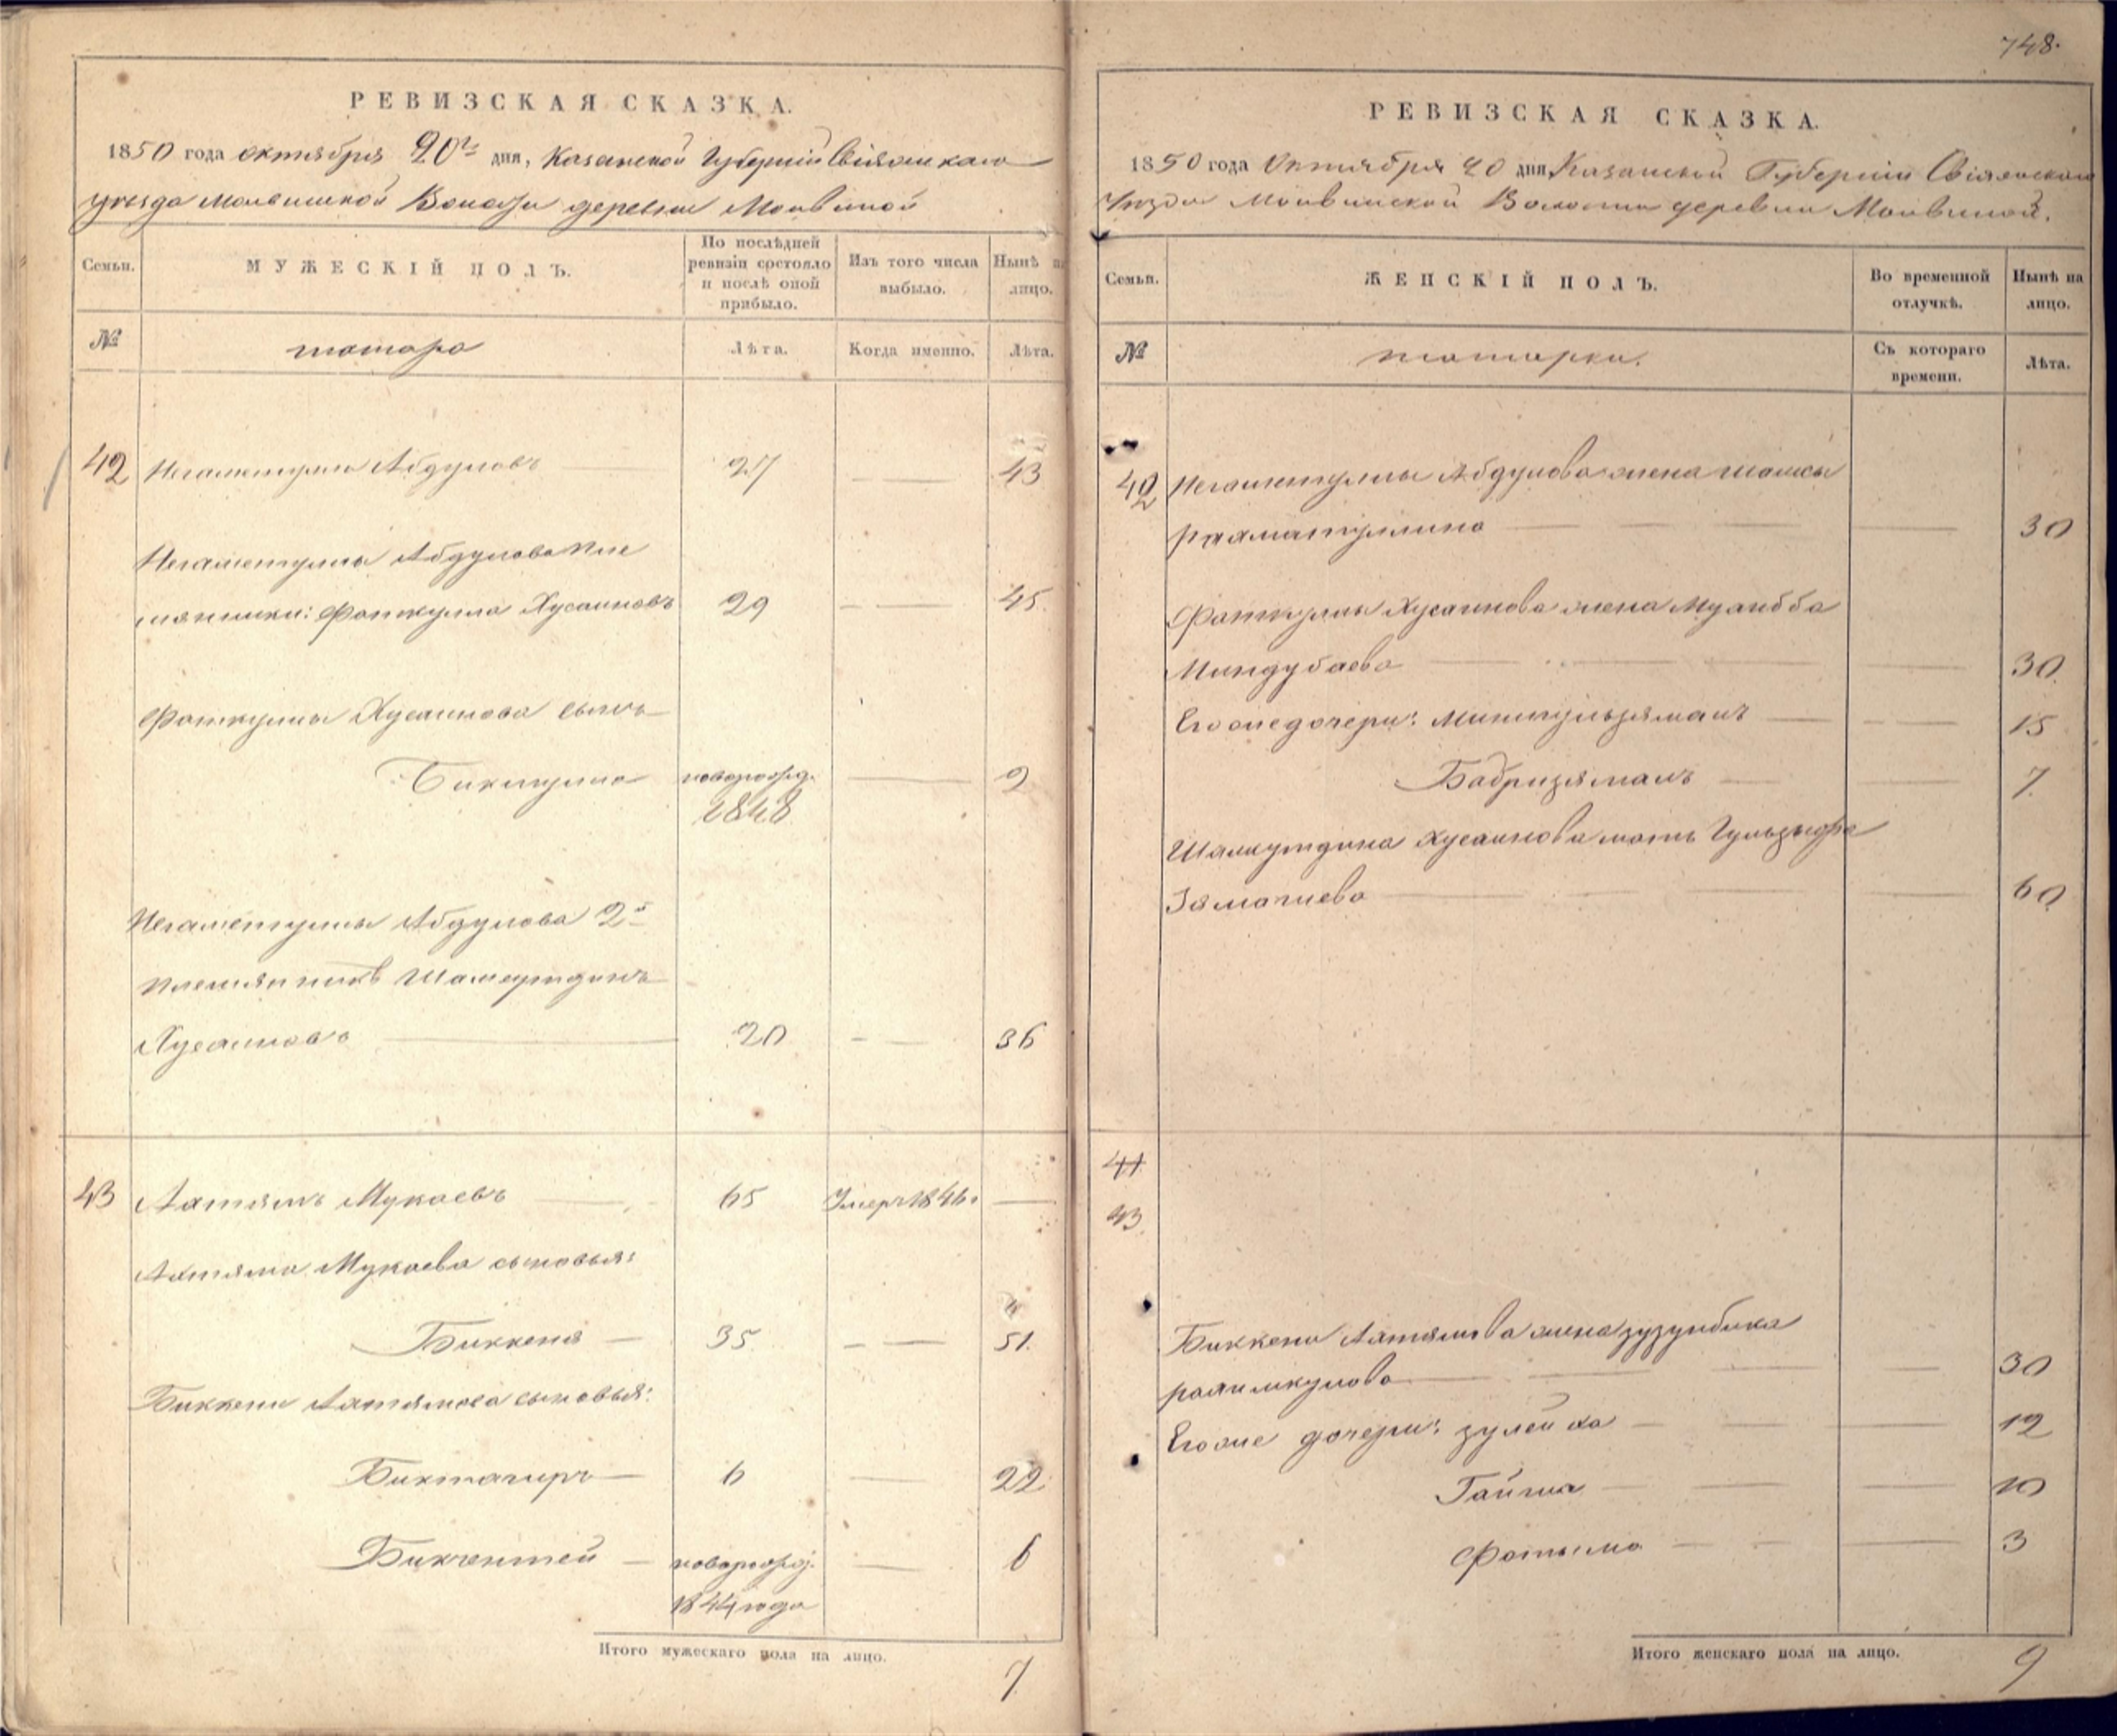 РЕВИЗСКАЯ СКАЗКА.
1850 года октября 20го дня, Казанской Губернiи Свiяжскаго
уѣзда Молвинской Волости деревни Молвиной
Семьи.
МУЖЕСКIЙ ПОЛЪ.
По послѣдней
ревизiи состояло
и послѣ оной
прибыло.
Изъ того числа
выбыло.
Нынѣ на
лицо.
№
татара
Лѣта.
Когда именно.
Лѣта.
42 Негаметулла Абдуловъ 27 43
Негаметуллы Абдулова пле
мянники: Фаткулла Хусаиновъ 29 45
Фаткуллы Хусаинова сынъ
Биктулла новорожд. 2
1848
Негаметуллы Абдулова 2й
племянникъ Шамсутдинъ
Хусаиновъ 20 36
43 Ахтямъ Мукаевъ 65 Умеръ 1846г
Ахтяма Мукаева сыновья:
Биккеня 35 51.
Биккени Ахтямова сыновья:
Биктагиръ 6 22
Бикчентей новорожд. 6
1844 года
Итого мужескаго пола на лицо.
7
748.
РЕВИЗСКАЯ СКАЗКА.
1850 года Октября 20 дня Казанской Губернiи Свiяжскаго
Уѣзда Молвинской Волости деревни Молвиной.
Семьи.
ЖЕНСКIЙ ПОЛЪ.
Во временной
отлучкѣ.
Нынѣ на
лицо.
№
татарки.
Съ котораго
времени.
Лѣта.
42 Негаметуллы Абдулова жена Шамсы
Рахматуллина 30
Фаткуллы Хусаинова жена Мухибба
Миндубаева 30
Его же дочери: Минигульзямалъ 15
Бадризямалъ 7
Шамсутдина Хусаинова мать Гульзыфа
60
41
43
Биккени Ахтямова жена Зузунбика
Рахимкулова 30
Его же дочери: Зулейха 12
Гайша 10
Фатыма 3
Итого женскаго пола на лицо.
9